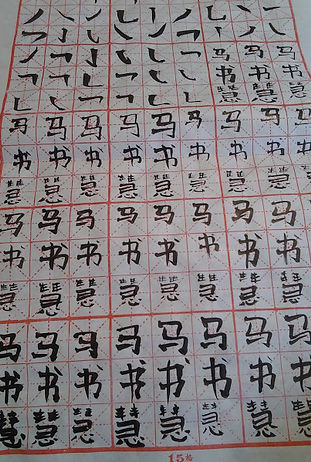 马 马 马
书 书 书
慧 慧 慧
马 马 马 马 马 马 马 马 马
书 书 书 书 书 书 书 书 书
慧 慧 慧 慧 慧 慧 慧 慧 慧
马 马 马 马 马 马 马 马
书 书 书 书 书 书 书 书
慧 慧 慧 慧 慧 慧 慧 慧
马 马 马 马 马 马 马 马
书 书 书 书 书 书 书 书
慧 慧 慧 慧 慧 慧 慧 慧
15格